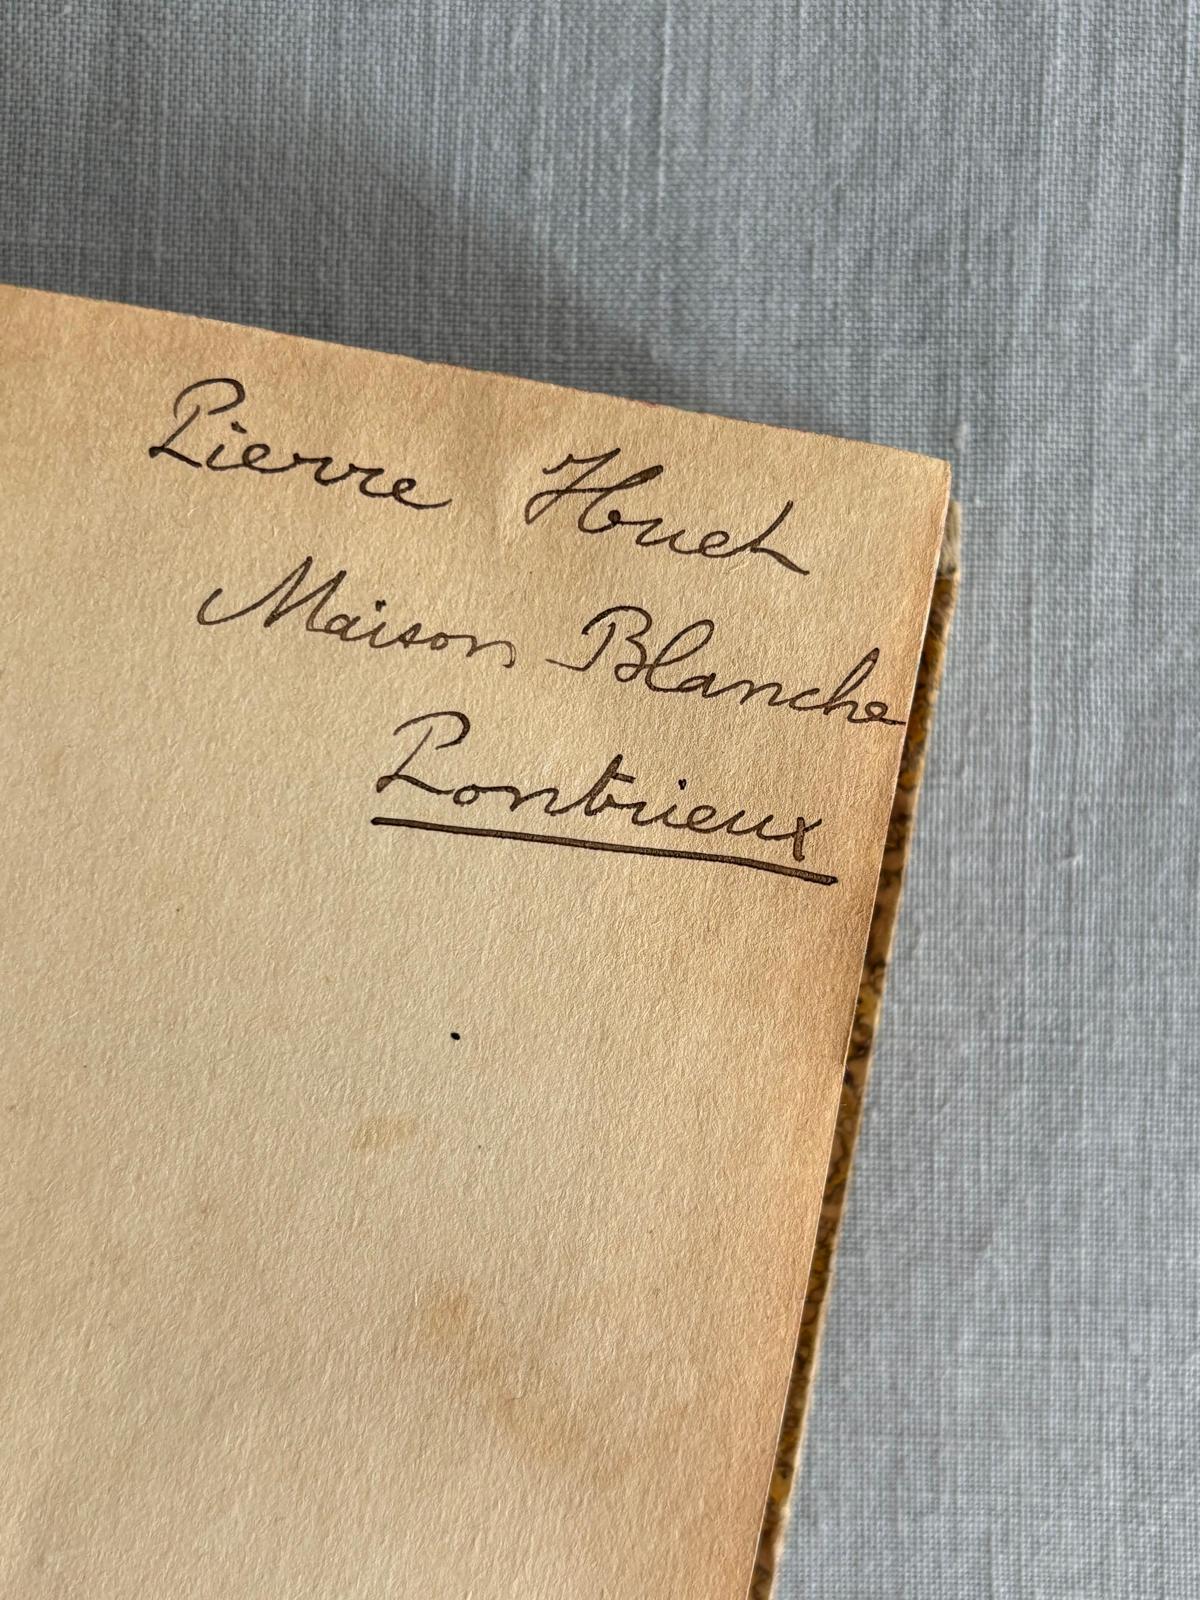 Pierre Huet
Maison Blanche
Pontrieux